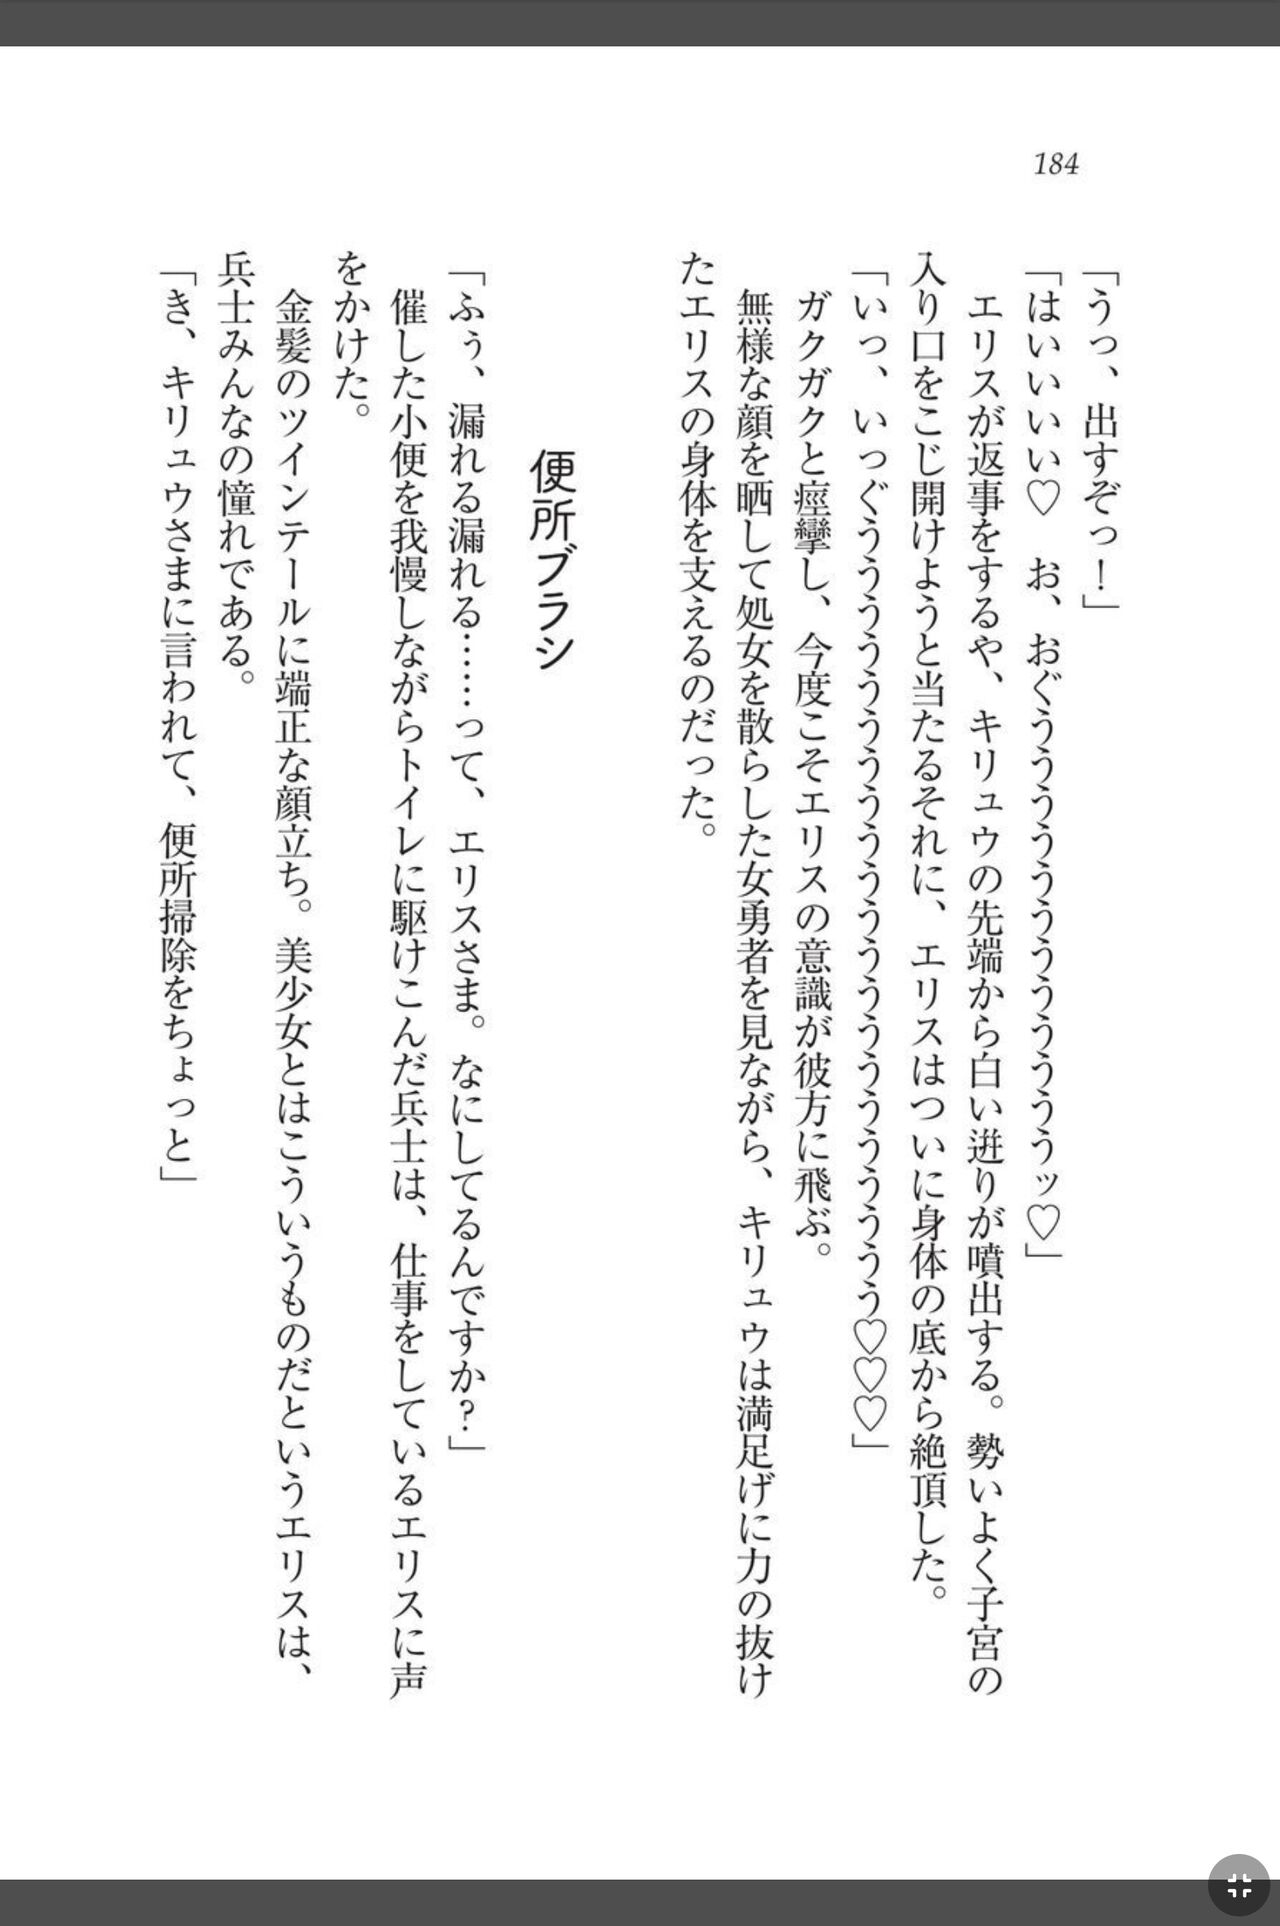 184
「うっ、出すぞっ！」
「はいいいい♡　お、おぐうううううううううううッ♡」
　エリスが返事をするや、キリュウの先端から白い迸りが噴出する。勢いよく子宮の
入り口をこじ開けようと当たるそれに、エリスはついに身体の底から絶頂した。
「いっ、いっぐうううううううううううううううううううううう♡♡♡」
　ガクガクと痙攣し、今度こそエリスの意識が彼方に飛ぶ。
　無様な顔を晒して処女を散らした女勇者を見ながら、キリュウは満足げに力の抜け
たエリスの身体を支えるのだった。
便所ブラシ
「ふぅ、漏れる漏れる……って、エリスさま。なにしてるんですか？」
　催した小便を我慢しながらトイレに駆けこんだ兵士は、仕事をしているエリスに声
をかけた。
　金髪のツインテールに端正な顔立ち。美少女とはこういうものだというエリスは、
兵士みんなの憧れである。
「き、キリュウさまに言われて、便所掃除をちょっと」